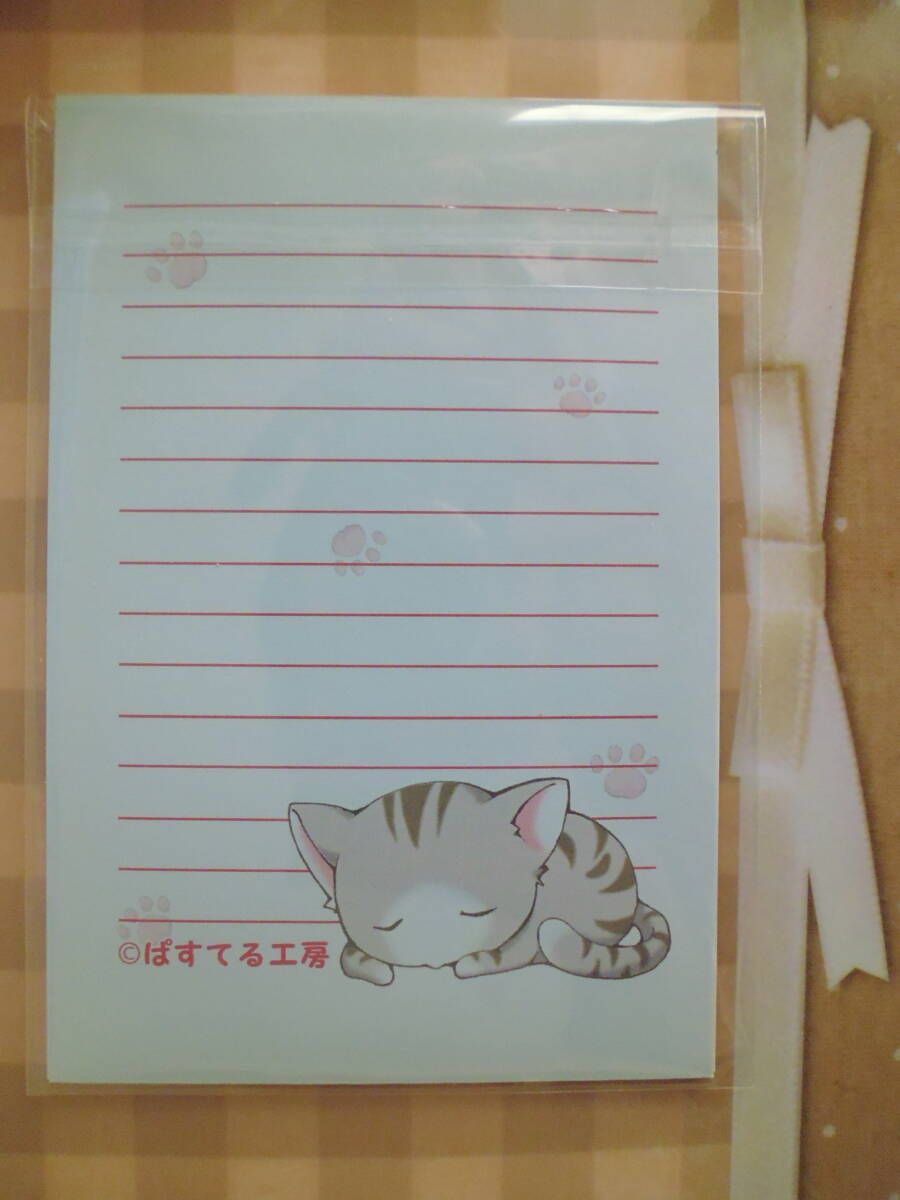 ©ぱすてる工房